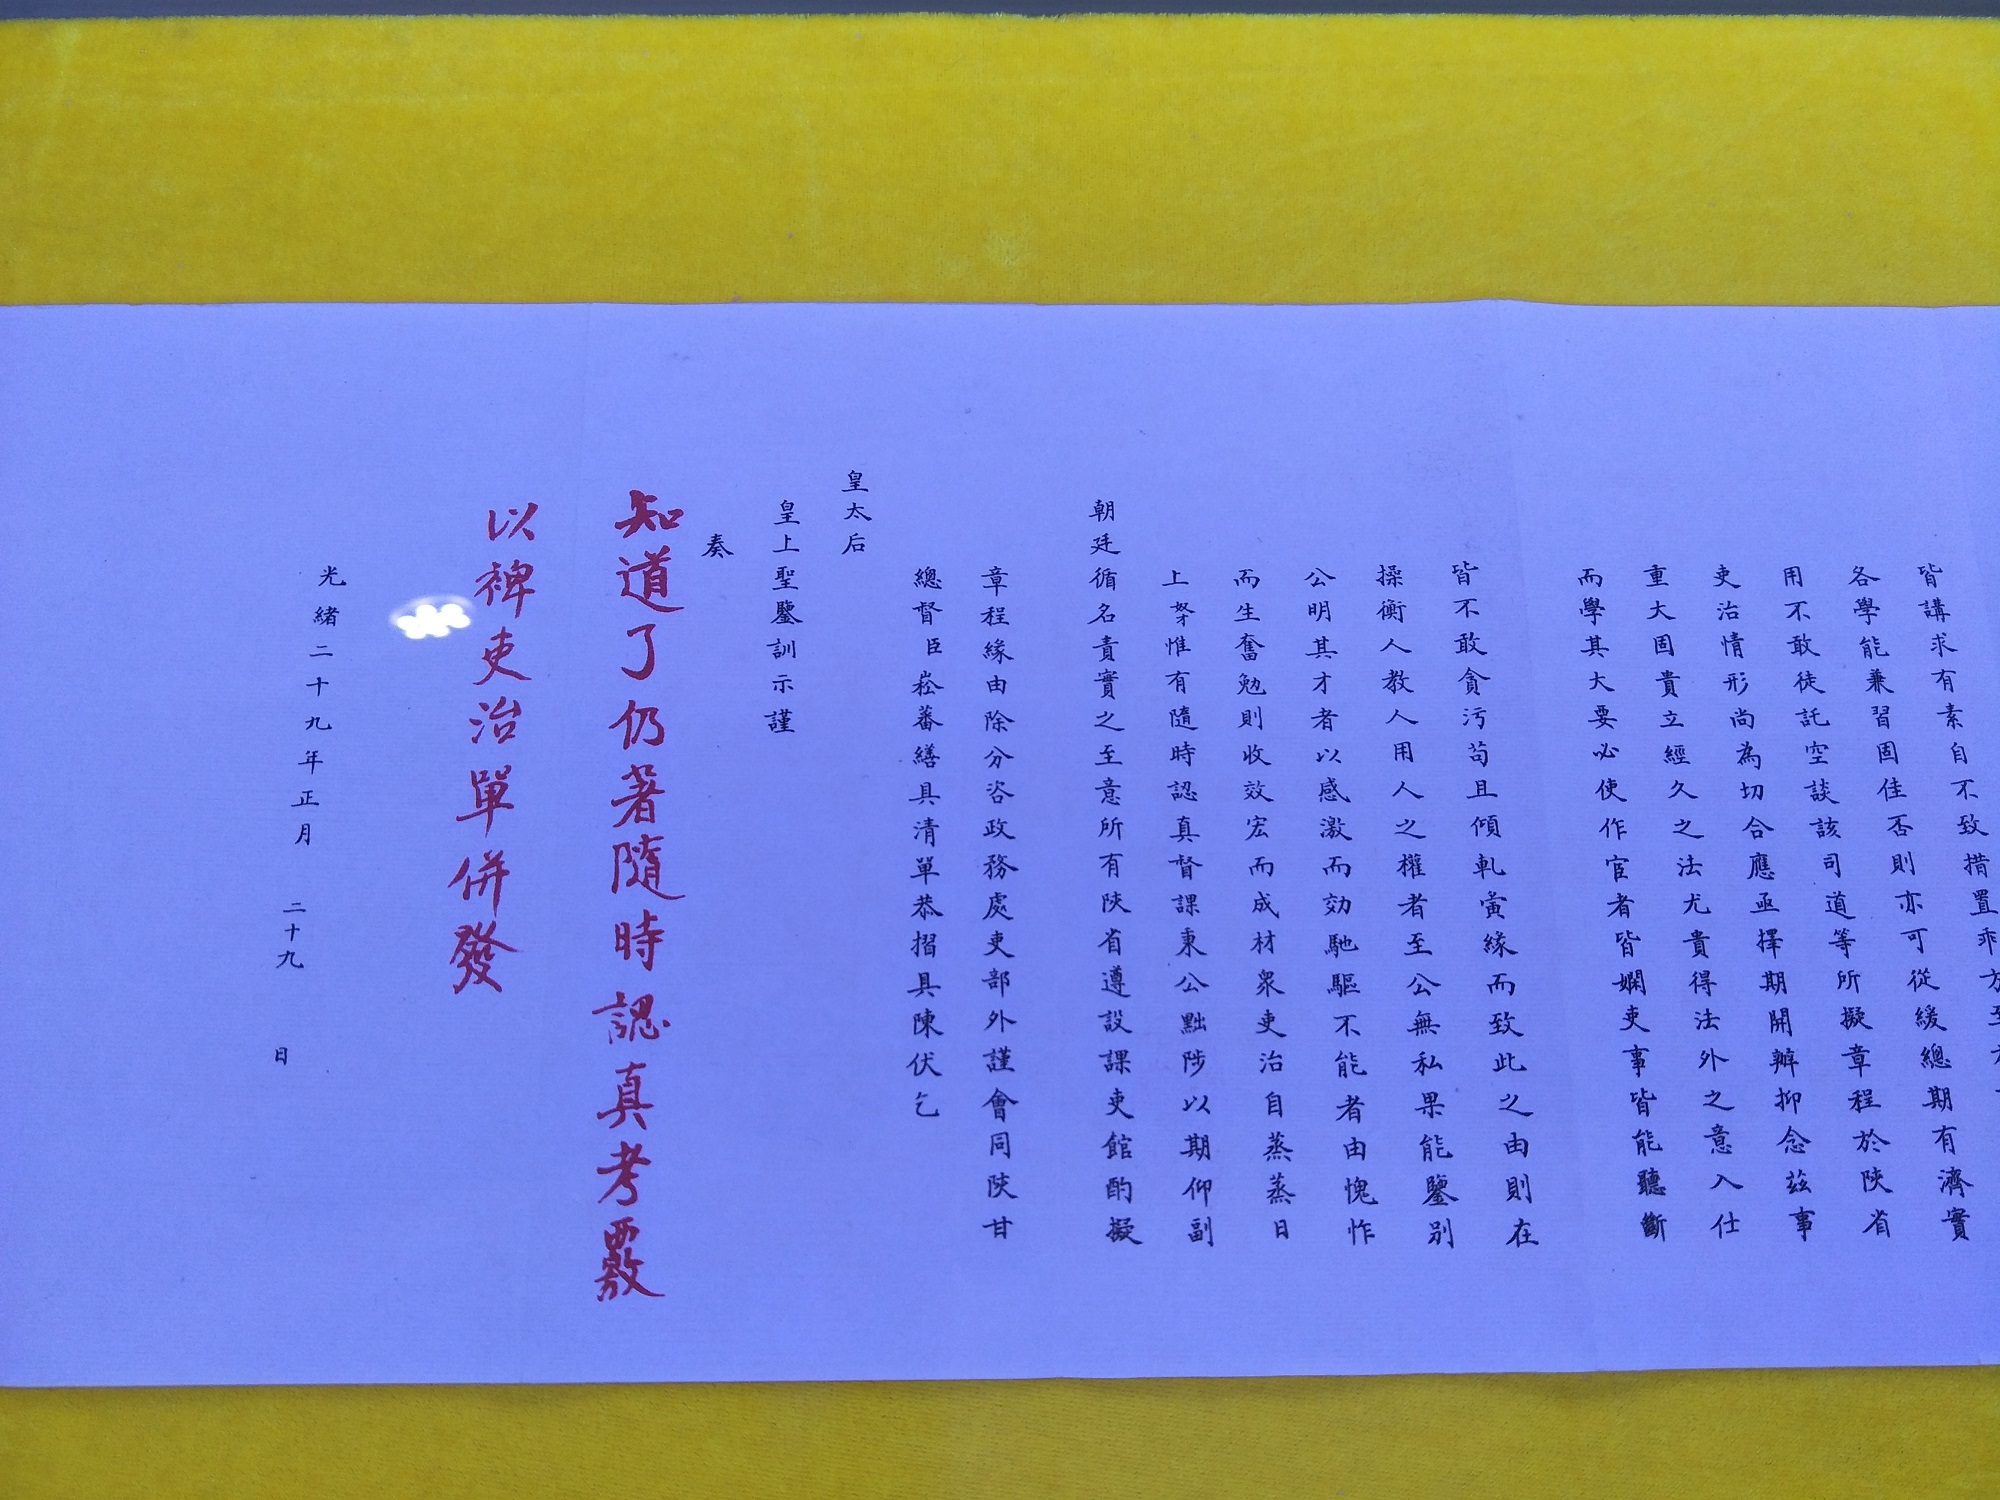 皆講求有素自不致措置乖方至
各學能兼習固佳否則亦可從緩總期有濟實
用不敢徒託空談該司道等所擬章程於陝省
吏治情形尚為切合應亟擇期開辦抑念茲事
重大固貴立經久之法尤貴得法外之意入仕
而學其大要必使作官者皆嫻吏事皆能聽斷
皆不敢貪污苟且傾軋夤緣而致此之由則在
操衡人教人用人之權者至公無私果能鑒別
公明其才者以感激而効馳驅不能者由愧怍
而生奮勉則收效宏而成材衆吏治自蒸蒸日
上孥惟有隨時認真督課秉公黜陟以期仰副
朝廷循名責實之至意所有陝省遵設課吏館酌擬
章程緣由除分咨政務處吏部外謹會同陝甘
總督臣崧蕃繕具清單恭摺具陳伏乞
皇太后
皇上聖鑒訓示謹
奏
知道了仍著隨時認真考覈
以裨吏治單併發
光緒二十九年正月二十九日